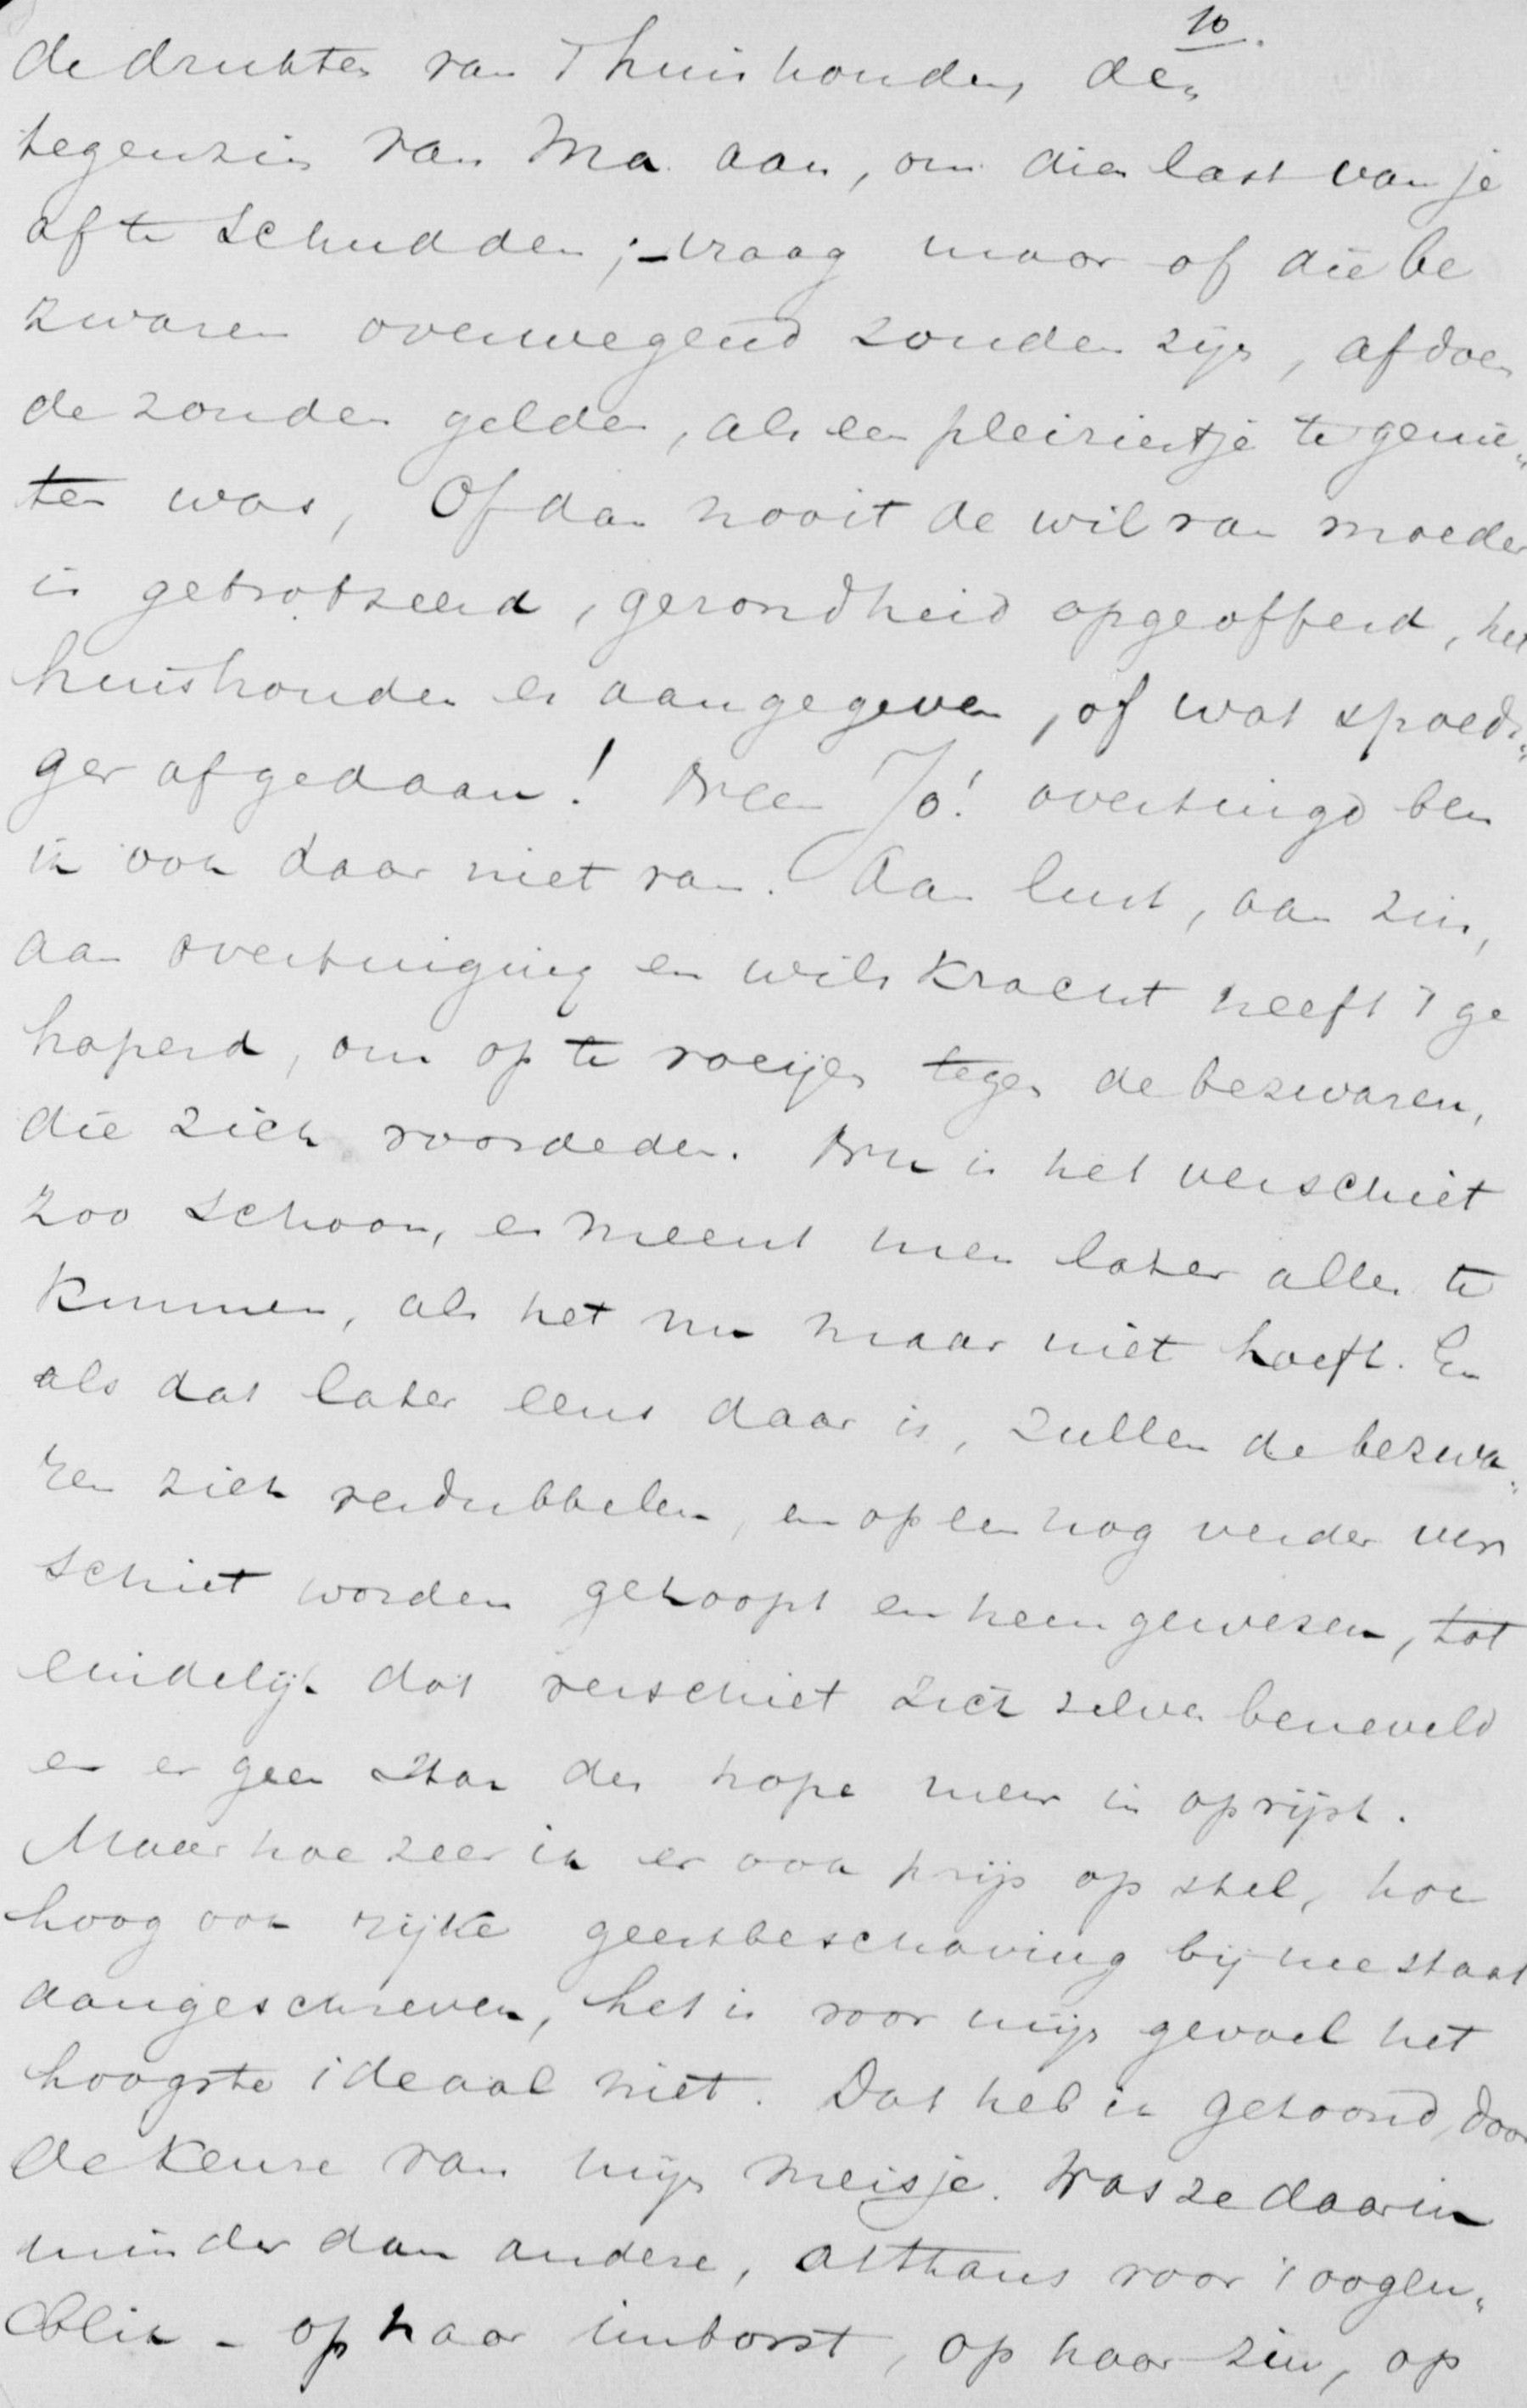 10.
de drukten van 't huishouden, den
tegenzin van Ma aan, om dien last van je
af te schudden; – vraag maar of die be
zwaren overwegend zouden zijn, afdoen
de zouden gelden, als een pleiziertje te genie„
ten was, Of dan nooit de wil van moeder
is getrotseerd, gezondheid opgeofferd, het
huishouden er aangegeven, of wat spoedi„
ger afgedaan! Neen Jo! overtuigd ben
ik ook daar niet van. Aan lust, aan zin,
aan overtuiging en wilskracht heeft 't ge
haperd, om op te roeijen tegen de bezwaren,
die zich voordeden. Nu is het verschiet
zoo schoon, en meent men later alles te
kunnen, als het nu maar niet hoeft. En
als dat later eens daar is, zullen de bezwa„
ren zich verdubbelen, en op een nog verder ver
schiet worden gehoopt en heengewezen, tot
eindelijk dat verschiet zich zelve beneveld
en er geen star der hope meer in oprijst.
Maar hoe zeer ik er ook prijs op stel, hoe
hoog ook rijke geestbeschaving bij me staat
aangeschreven, het is voor mijn gevoel het
hoogste ideaal niet. Dat heb ik getoond, door
de keuze van mijn meisje. Was ze daarin
minder dan andere, althans voor 't oogen„
blik – op haar inborst, op haar zin, op